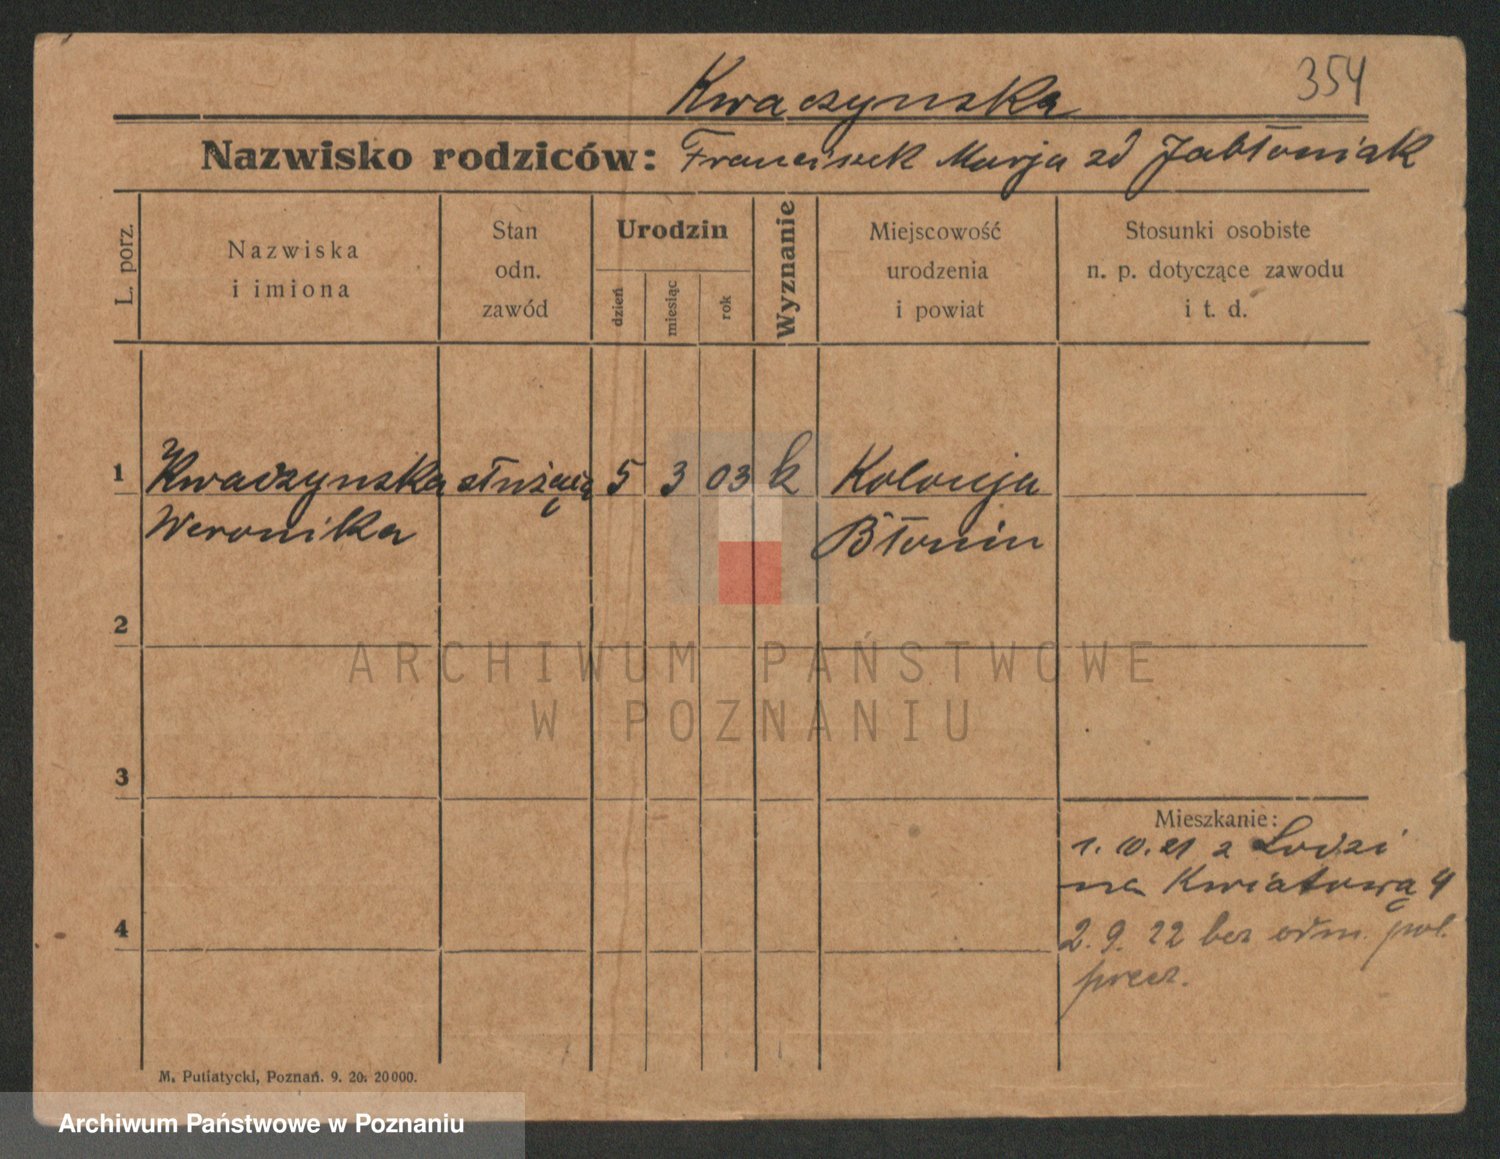 354
Kwaczynska
Nazwisko rodziców: Franciszek Marja zd Jabłoniak
L. porz.
Nazwiska
i imiona
Stan
odn.
zawód
Urodzin
dzień
miesiąc
rok
Wyznanie
Miejscowość
urodzenia
i powiat
Stosunki osobiste
n. p. dotyczące zawodu
i t. d.
1 Kwaczynska służąca 5 3 03 k Kolonja
Weronika Błonin
2
3
4
Mieszkanie:
1. 10. 21 z Lodzi
na Kwiatową 4
2. 9. 22 bez odm. pol.
przez.
M. Putiatycki, Poznań. 9. 20. 20000.
ARCHIWUM PAŃSTWOWE
W POZNANIU
Archiwum Państwowe w Poznaniu